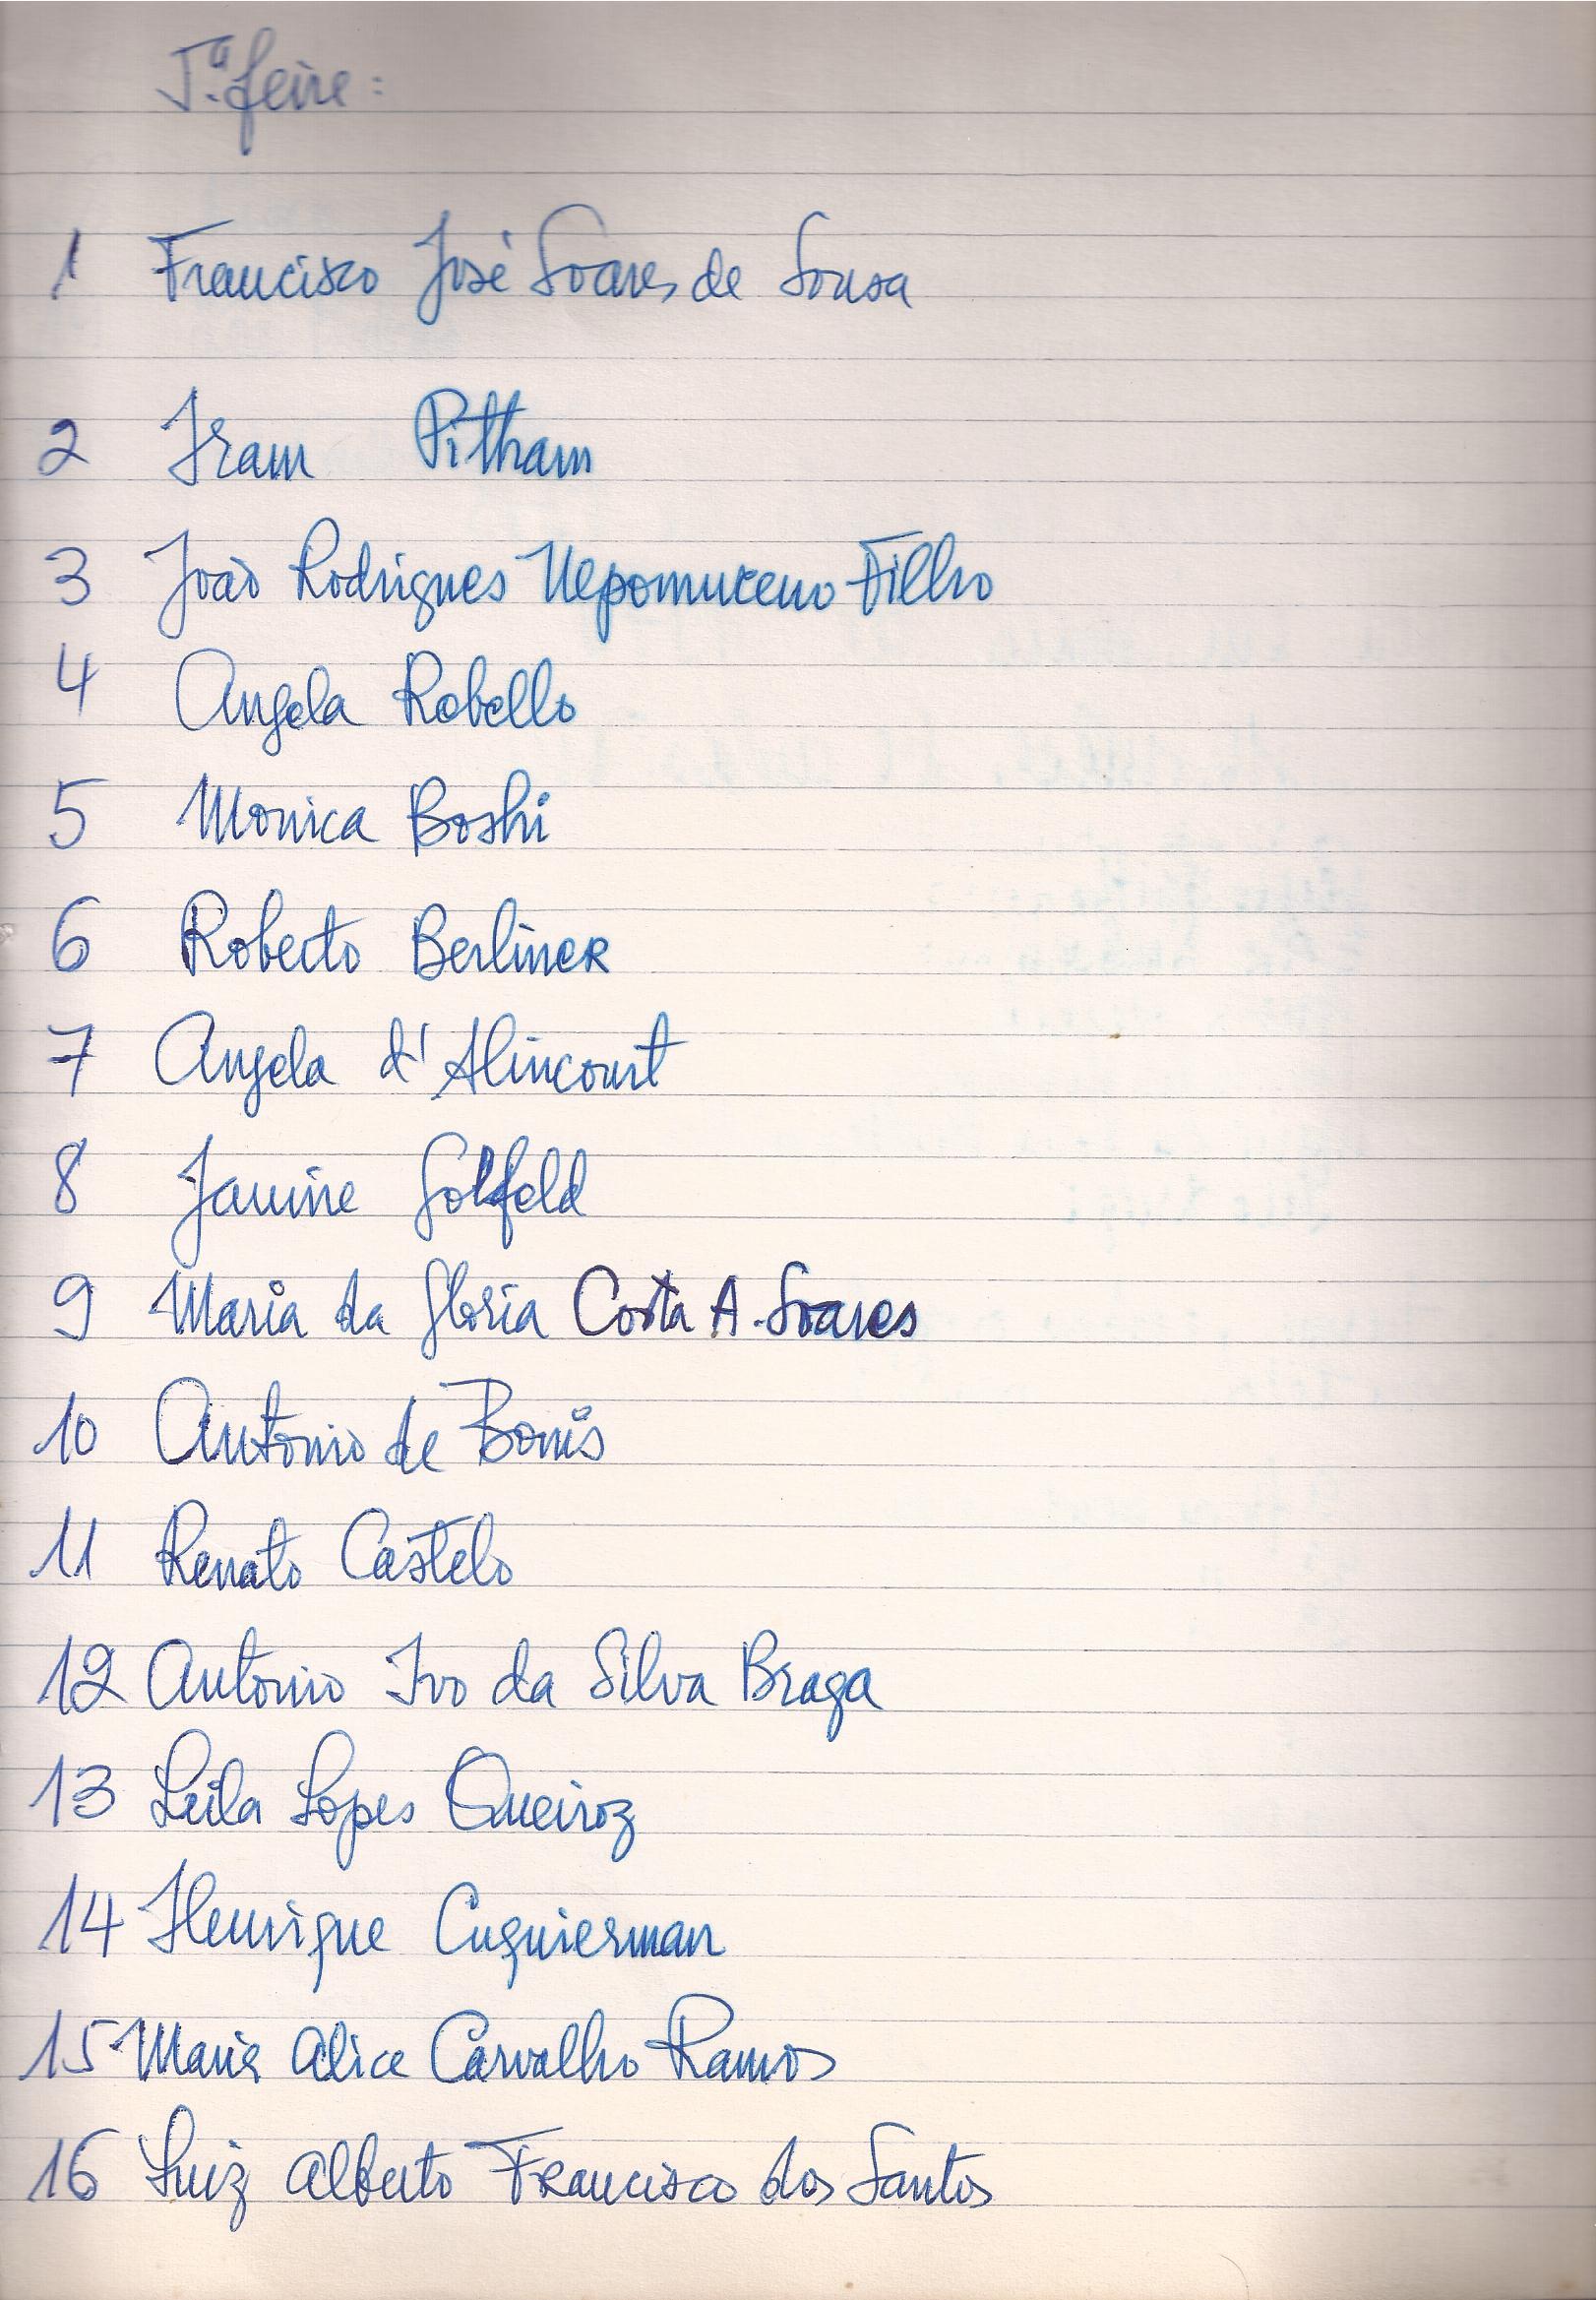 5ª feira:
1 Francisco José Soares de Sousa
2 Hram Pitham
3 João Rodrigues Nepomuceno Filho
4 Angela Rebello
5 Monica Boshi
6 Roberto Berliner
7 Angela d'Alincourt
8 Janine Golfeld
9 Maria da Gloria Costa A. Soares
10 Antonio de Bonis
11 Renato Castelo
12 Antonio Ivo da Silva Braga
13 Leila Lopes Queiroz
14 Henrique Cuquierman
15 Maria Alice Carvalho Ramos
16 Luiz Alberto Francisco dos Santos